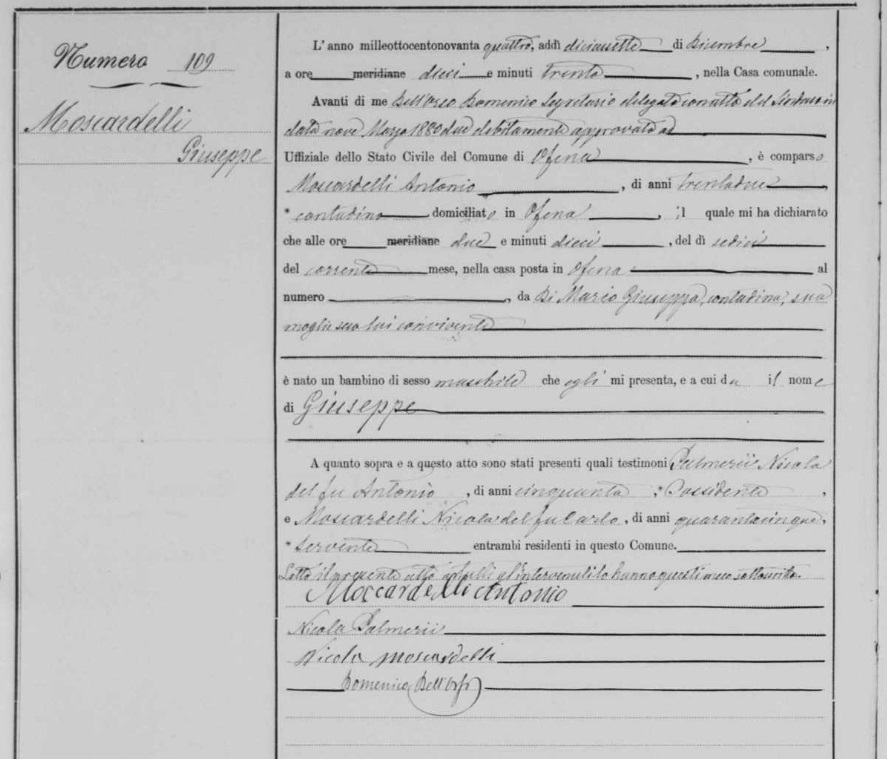 Numero 109
Moscardelli
Giuseppe
L'anno milleottocentonovanta quattro, addì diciassette di Dicembre,
a ore meridiane dieci e minuti trenta, nella Casa comunale.
Avanti di me Dell'Orso Domenico Segretario delegato con atto del Sindaco in
data nove Marzo 1880 due debitamente approvato
Uffiziale dello Stato Civile del Comune di Ofena, è comparso
Moscardelli Antonio, di anni trentadue,
* contadino domiciliato in Ofena, il quale mi ha dichiarato
che alle ore meridiane due e minuti dieci, del dì sedici
del corrente mese, nella casa posta in Ofena al
numero, da Di Marco Giuseppa, contadina, sua
moglie seco lui convivente
è nato un bambino di sesso maschile che egli mi presenta, e a cui da il nome
di Giuseppe
A quanto sopra e a questo atto sono stati presenti quali testimoni Palmerii Nicola
del fu Antonio, di anni cinquanta, Possidente,
e Moscardelli Nicola del fu Carlo, di anni quarantacinque,
* servente entrambi residenti in questo Comune.
Letto il presente atto a tutti gl'intervenuti lo hanno questi meco sottoscritto.
Moscardelli Antonio
Nicola Palmerii
Nicola Moscardelli
Domenico Dell'Orso